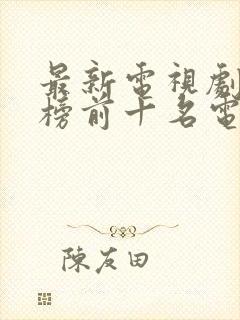 最新電視劇
榜前十名電
陳友田